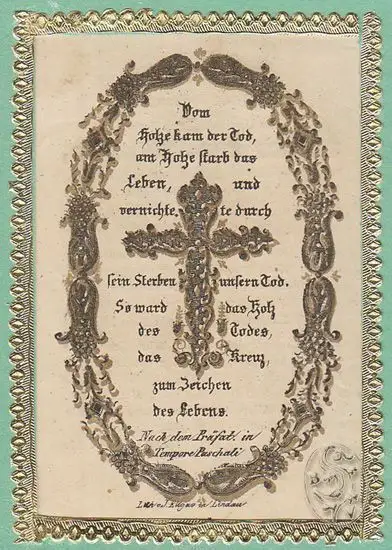 Vom
Holze kam der Tod,
am Holze starb das
Leben, und
vernichte te durch
sein Sterben unsern Tod.
So ward das Holz
des Todes,
das Kreuz,
zum Zeichen
des Lebens.
Nach dem Präfat. in
Tempore Paschali
in Lindau